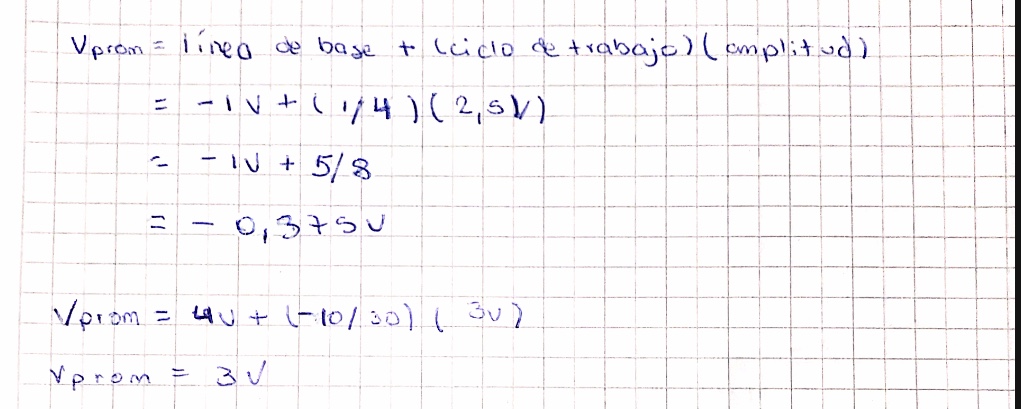 Vprom = línea de base + (ciclo de trabajo)(amplitud)
= -1V + (1/4)(2,5V)
= -1V + 5/8
= -0,375V
Vprom = 4V + (-10/30)(3V)
Vprom = 3V